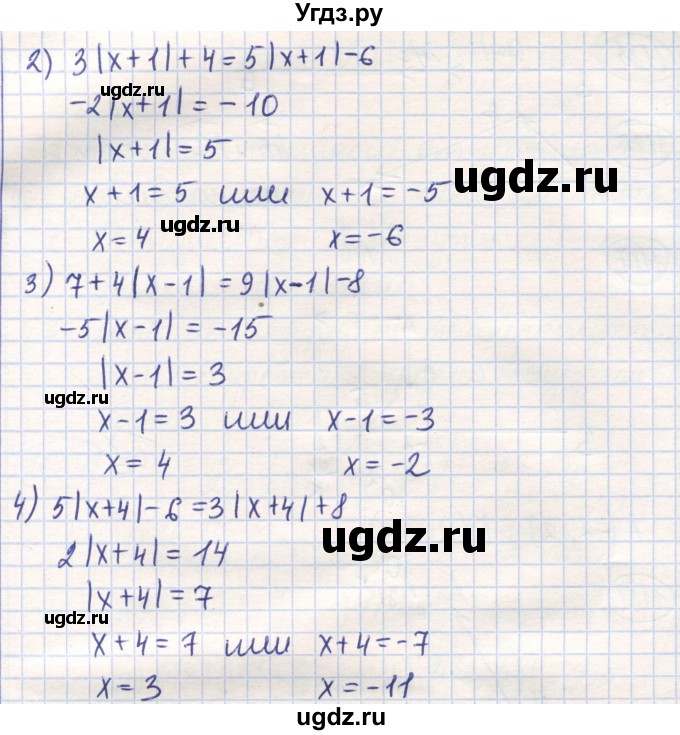 Угдз.ру
2) 3|x+1|+4=5|x+1|-6
ugdz.ru
-2|x+1|=-10
|x+1|=5
ugdz.ru
x+1=5 или x+1=-5
ugdz.ru
x=4 x=-6
3) 7+4|x-1|=9|x-1|-8
-5|x-1|=-15
|x-1|=3
ugdz.ru
x-1=3 или x-1=-3
x=4 x=-2
4) 5|x+4|-6=3|x+4|+8
ugdz.ru
2|x+4|=14
|x+4|=7
ugdz.ru
x+4=7 или x+4=-7
x=3 x=-11
ugdz.ru